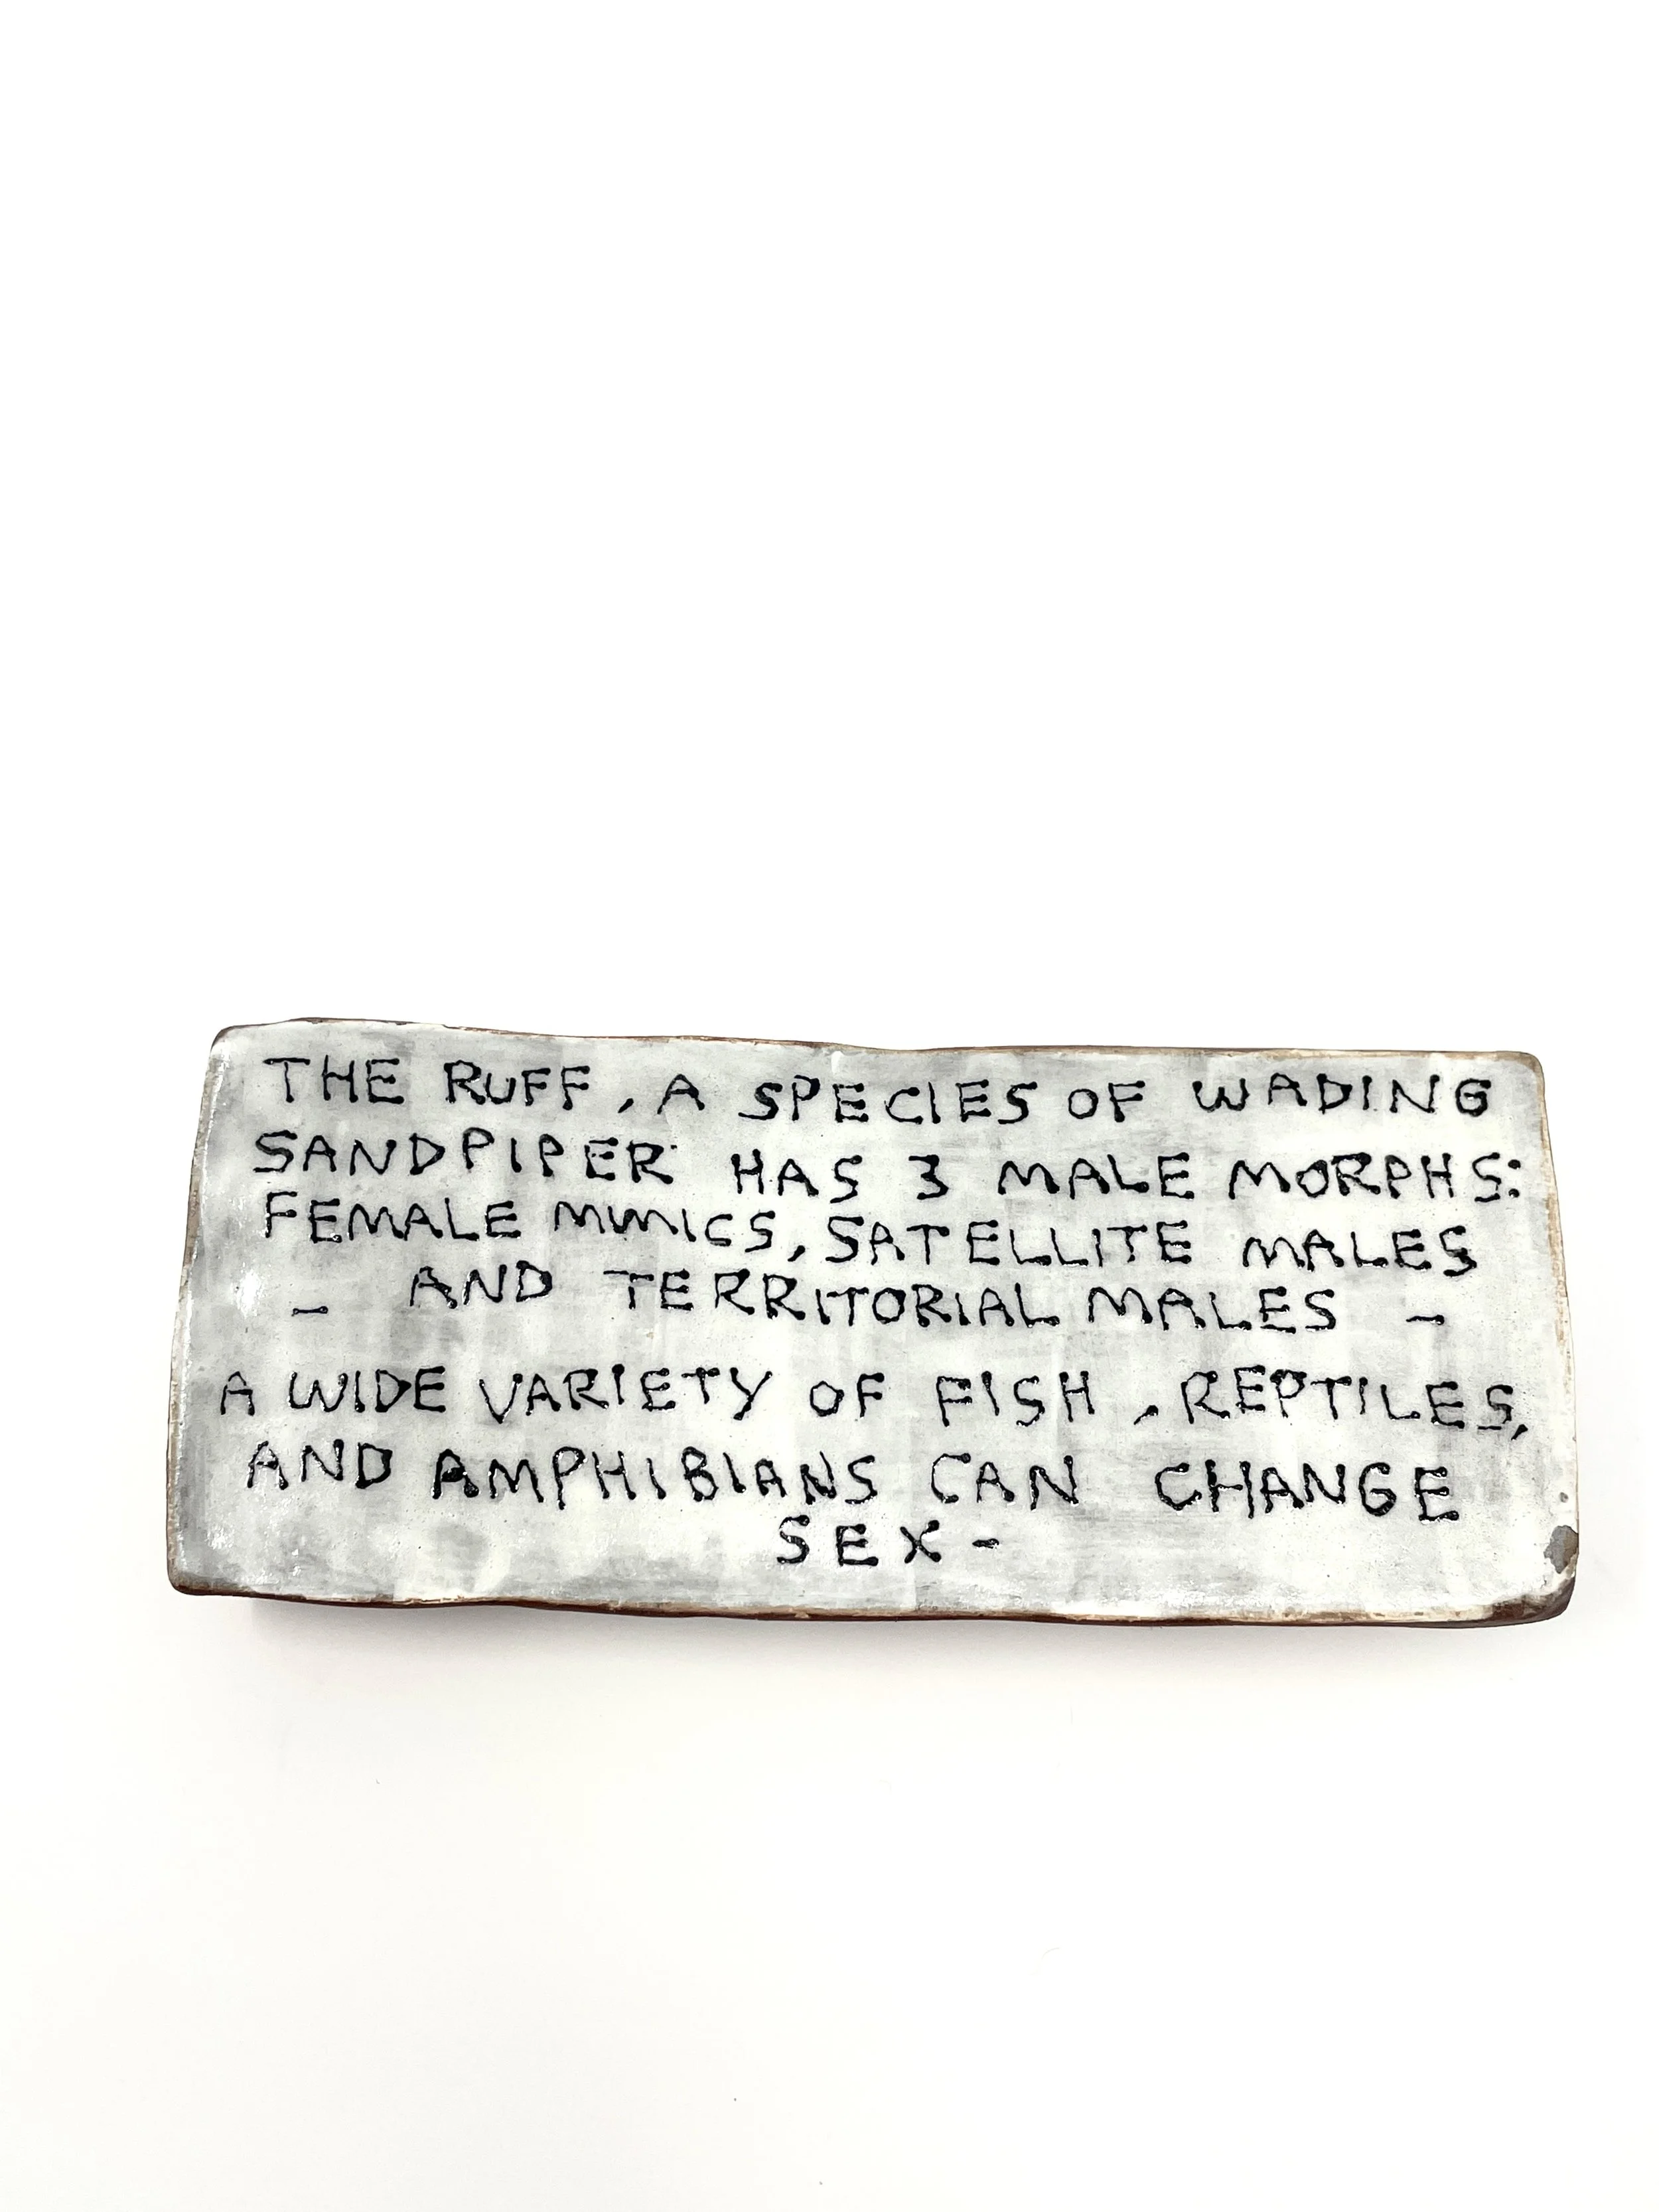 THE RUFF, A SPECIES OF WADING
SANDPIPER HAS 3 MALE MORPHS:
FEMALE MIMICS, SATELLITE MALES
- AND TERRITORIAL MALES -
A WIDE VARIETY OF FISH, REPTILES,
AND AMPHIBIANS CAN CHANGE
SEX-